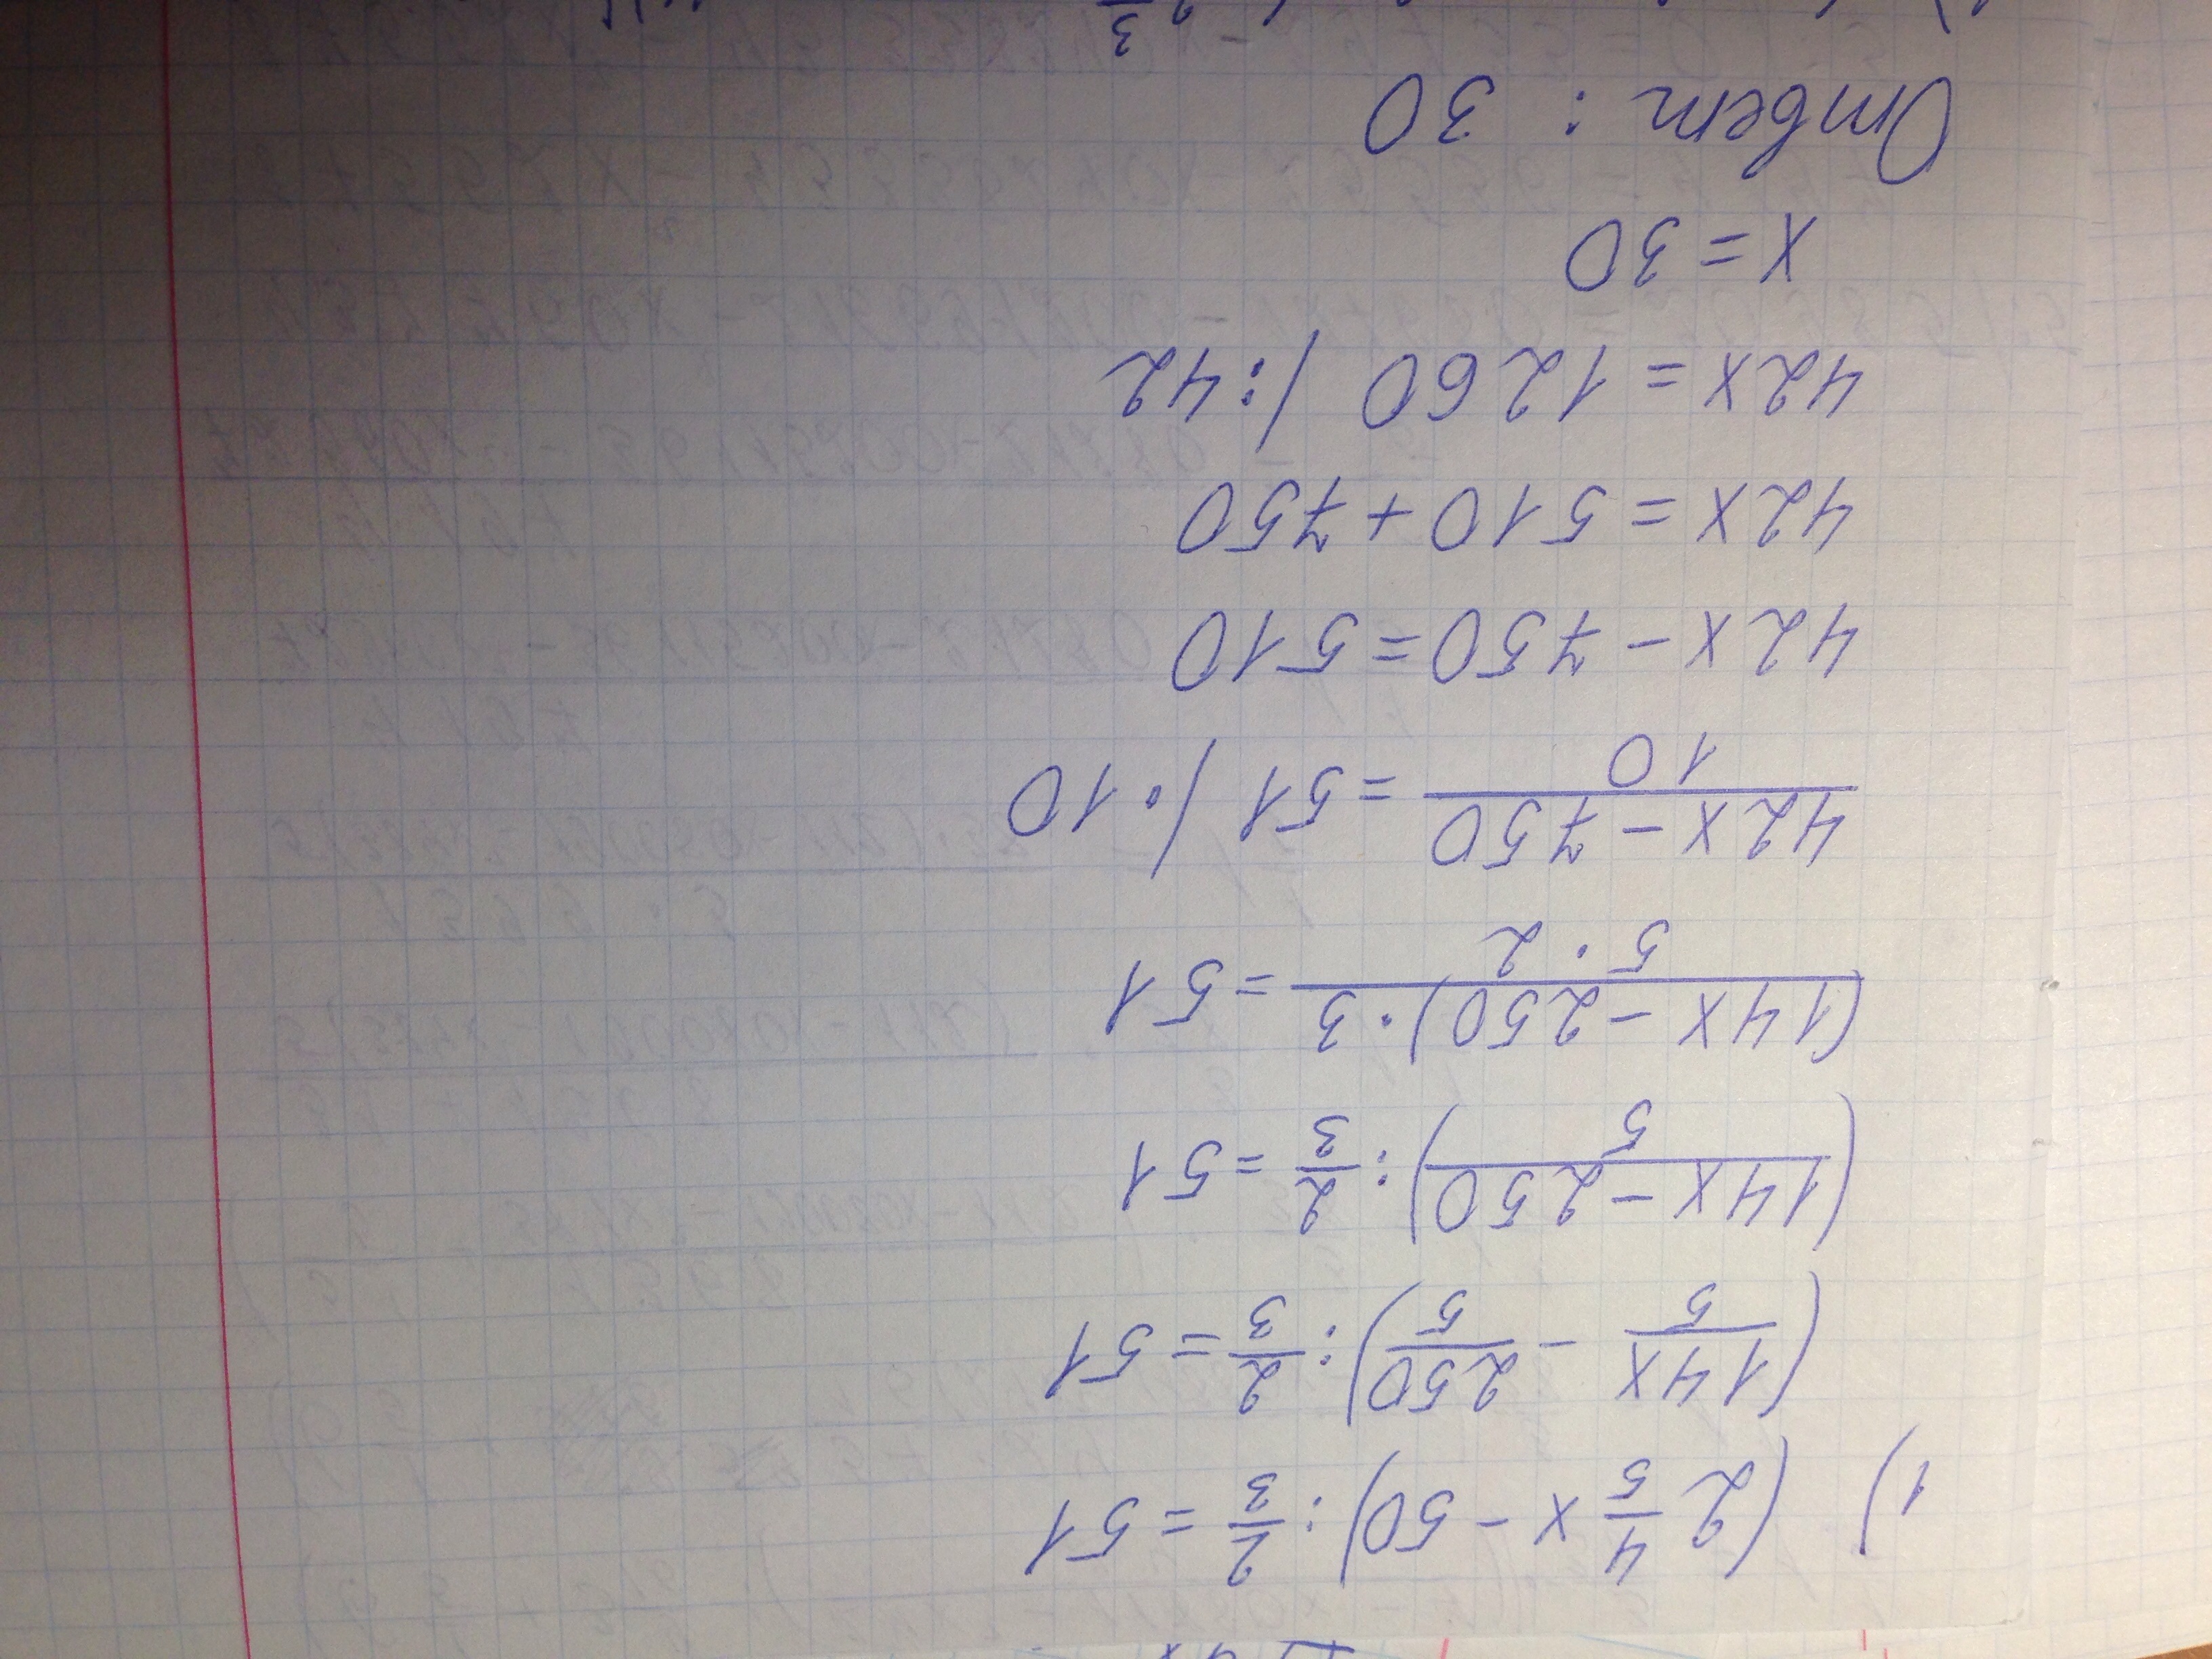 1) (2 4/5 x - 50) : 2/3 = 51
(14x/5 - 250/5) : 2/3 = 51
((14x - 250)/5) : 2/3 = 51
(14x - 250) · 3 / 5 · 2 = 51
42x - 750 / 10 = 51 | · 10
42x - 750 = 510
42x = 510 + 750
42x = 1260 | : 42
x = 30
Ответ : 30